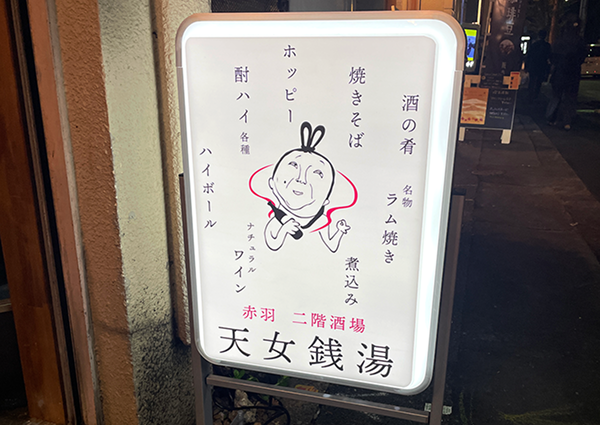 酒の肴
名物 ラム焼き
焼きそば
煮込み
ホッピー
酎ハイ 各種
ナチュラル ワイン
ハイボール
赤羽 二階酒場
天女銭湯